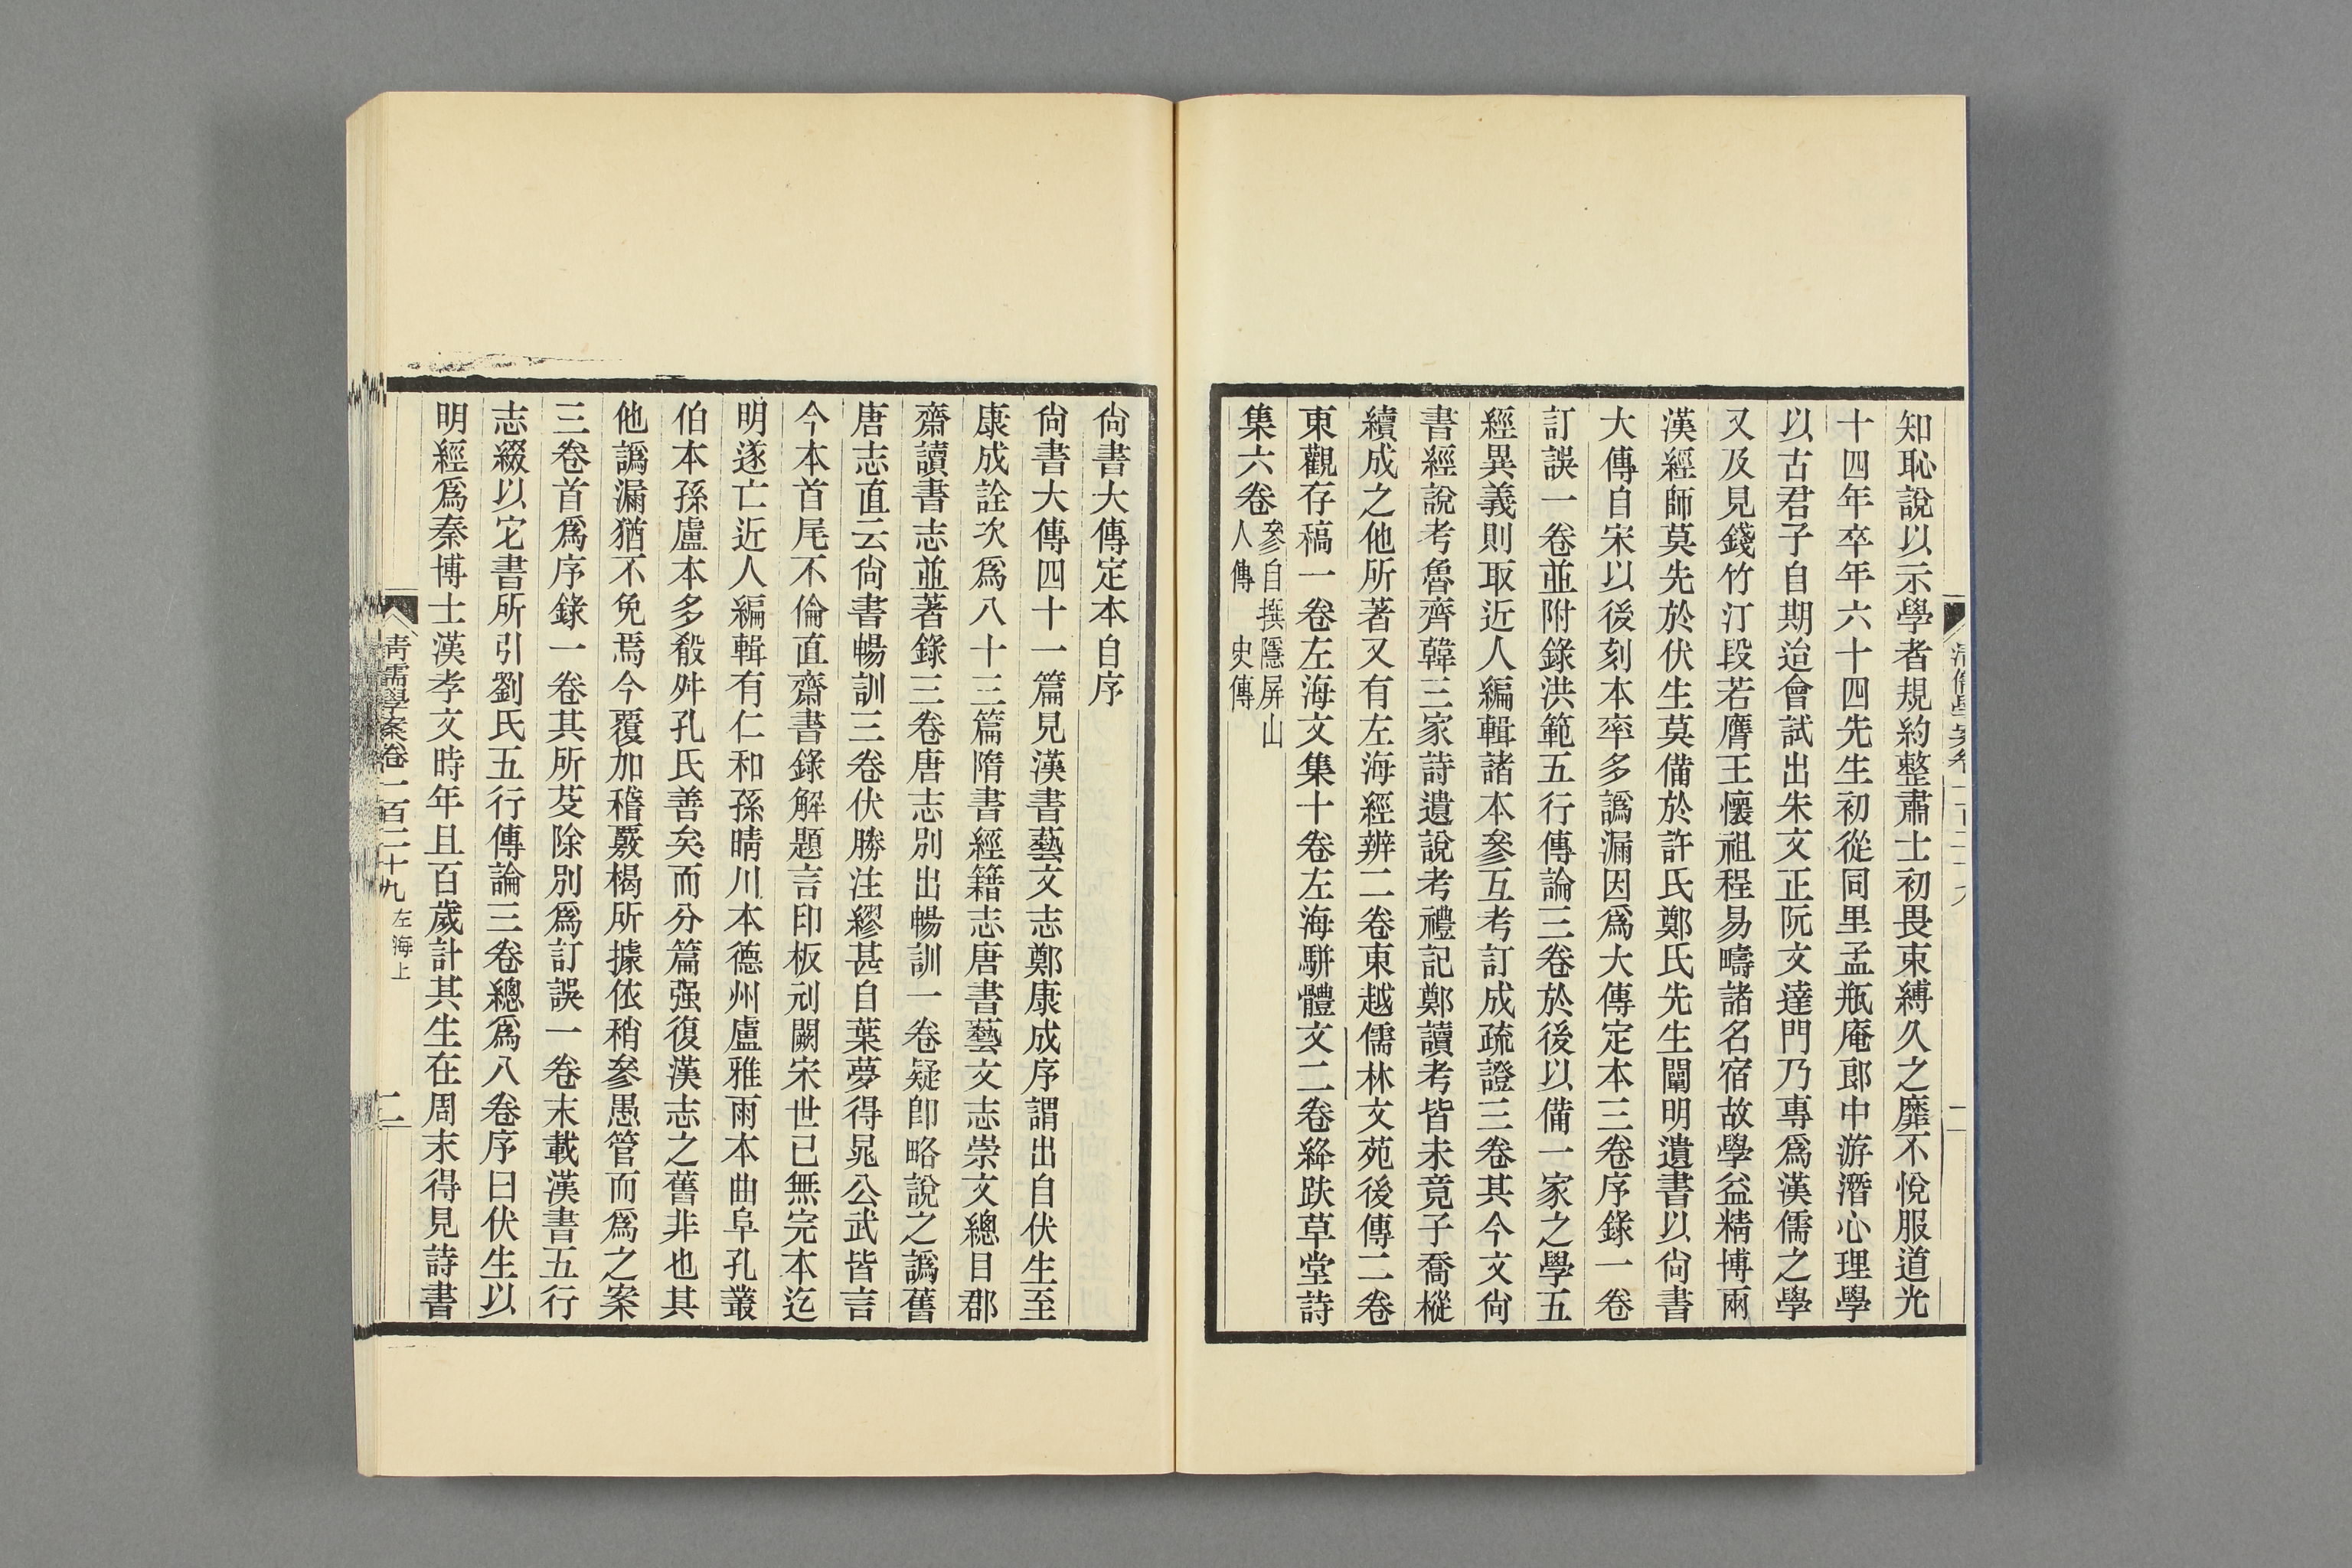 知恥說以示學者規約整肅士初畏束縛久之靡不悅服道光
十四年卒年六十四先生初從同里孟瓶庵郎中游潛心理學
以古君子自期迨會試出朱文正阮文達門乃專爲漢儒之學
又及見錢竹汀段若膺王懷祖程易疇諸名宿故學益精博兩
漢經師莫先於伏生莫備於許氏鄭氏先生闡明遺書以尙書
大傳自宋以後刻本率多譌漏因爲大傳定本三卷序錄一卷
訂誤一卷並附錄洪範五行傳論三卷於後以備一家之學五
經異義則取近人編輯諸本參互考訂成疏證三卷其今文尙
書經說考魯齊韓三家詩遺說考禮記鄭讀考皆未竟子喬樅
續成之他所著又有左海經辨二卷東越儒林文苑後傳二卷
東觀存稿一卷左海文集十卷左海駢體文二卷絳跗草堂詩
集六卷
參自撰隱屏山
人傳 史傳
尙書大傳定本自序
尙書大傳四十一篇見漢書藝文志鄭康成序謂出自伏生至
康成詮次爲八十三篇隋書經籍志唐書藝文志崇文總目郡
齋讀書志並著錄三卷唐志別出暢訓一卷疑卽略說之譌舊
唐志直云尙書暢訓三卷伏勝注繆甚自葉夢得晁公武皆言
今本首尾不倫直齋書錄解題言印板刓闕宋世已無完本迄
明遂亡近人編輯有仁和孫晴川本德州盧雅雨本曲阜孔叢
伯本孫盧本多殽舛孔氏善矣而分篇强復漢志之舊非也其
他譌漏猶不免焉今覆加稽覈楬所據依稍參愚管而爲之案
三卷首爲序錄一卷其所芟除別爲訂誤一卷末載漢書五行
志綴以它書所引劉氏五行傳論三卷總爲八卷序曰伏生以
明經爲秦博士漢孝文時年且百歲計其生在周末得見詩書
清儒學案卷一百二十九 左海上
二